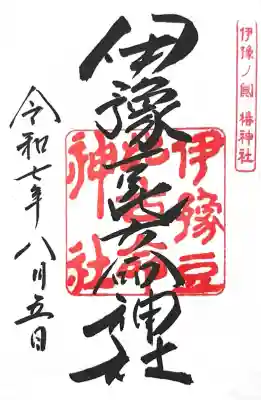 伊豫ノ國 椿神社
伊豫豆比古命神社
伊豫豆
比古命
神社
令和七年八月五日